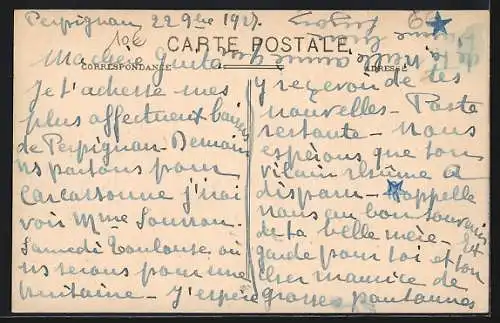 Perpignan 22 9bre 192
10€
CARTE POSTALE
CORRESPONDANCE
ADRESSE
Ma chère
Je t'adresse mes
plus affectueux baisers
de Perpignan. Demain
ns partons pour
Carcassonne j'irai
voir Mme
Samedi Toulouse, où
ns serons pour une
huitaine - J'espère
y recevoir de tes
nouvelles - Poste
restante - Nous
espérons que ton
vilain rhume a
disparu - Rappelle
nous au bon souvenir
de ta belle mère - et
garde pour toi et ton
cher Maurice de
grosses
de ta vieille amie qui
t'aime bien